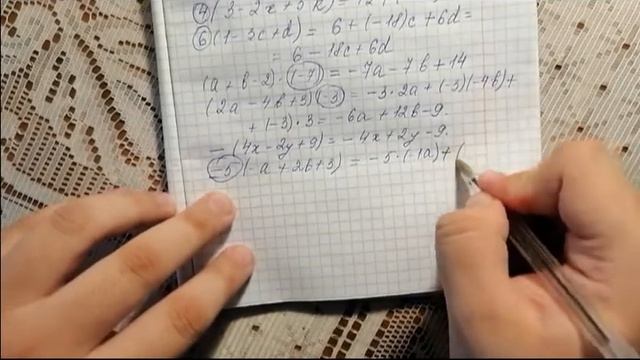 ④(3-2x+5k)=12
⑥(1-3c+d) = 6+(-18)c+6d=
= 6-18c+6d
(a+b-2)·(-7) = -7a-7b+14
(2a-4b+3)(-3) = -3·2a+(-3)(-4b)+
+(-3)·3 = -6a+12b-9.
-(4x-2y+9) = -4x+2y-9.
-5(-a+2b+3) = -5·(-1a)+(